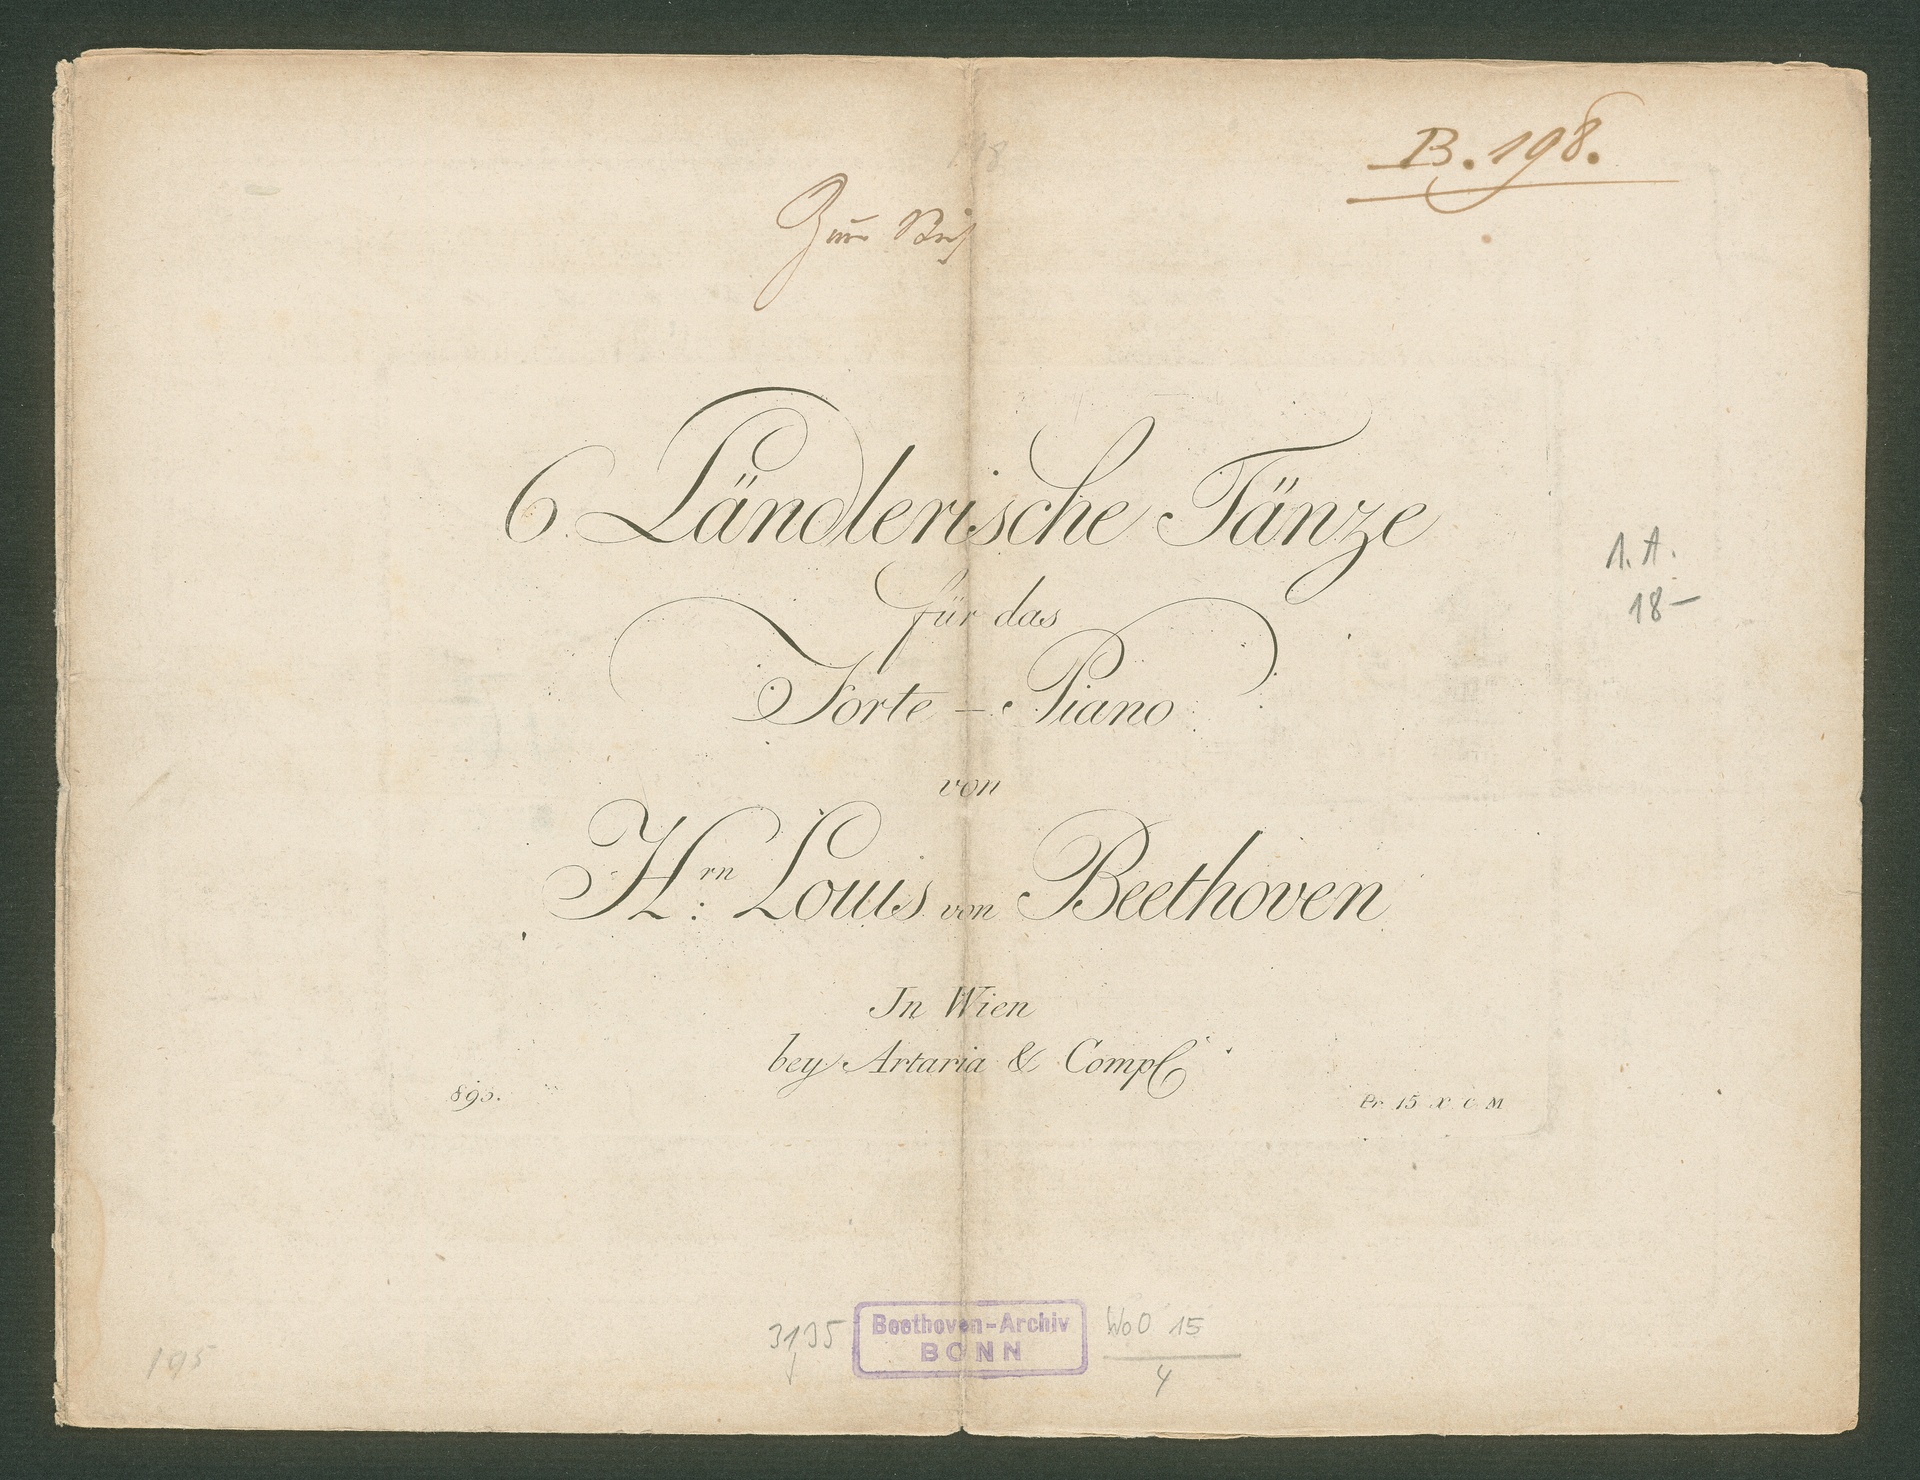 198
B. 198.
Zum
6 Ländlerische Tänze
für das
1. A.
18-
Forte - Piano
von
Hrn: Louis von Beethoven
In Wien
bey Artaria & Comp
Pr. 15 x C M
Beethoven-Archiv
BONN
WoO 15
4
195